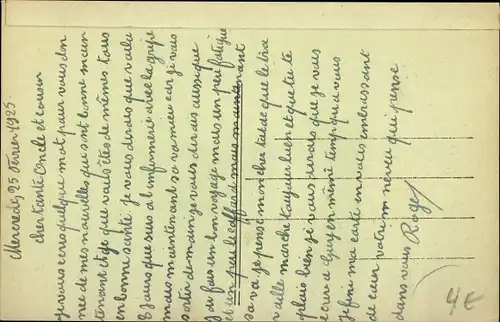 Mercredi 25 Février 1925
cher tante Oncle et cousin
je vous ecres quelque mot pour vous don
née de mes nouvelles qui sont bonne main
tenant et je que vous êtes de mêmes tous
en bonne santé. je vous dirais que voila
8 jours que suis a l'infirmerie avec la gripe
mais maintenant sa va mieu car je vais
sortir demain je vous dirais aussi que
j'ai fais un bon voyage mais un peu fatigué
et un peu le caffard mais maintenant
sa va je pense mon cher tatac que le tra
vaille marche toujour bien et que tu te
plais bien je vous dirais que je vais
ecrire a Guy en même temp que a vous
je fini ma carte en vous embrassant
de cœur votre neveu qui pense
dans vous Roger
4€